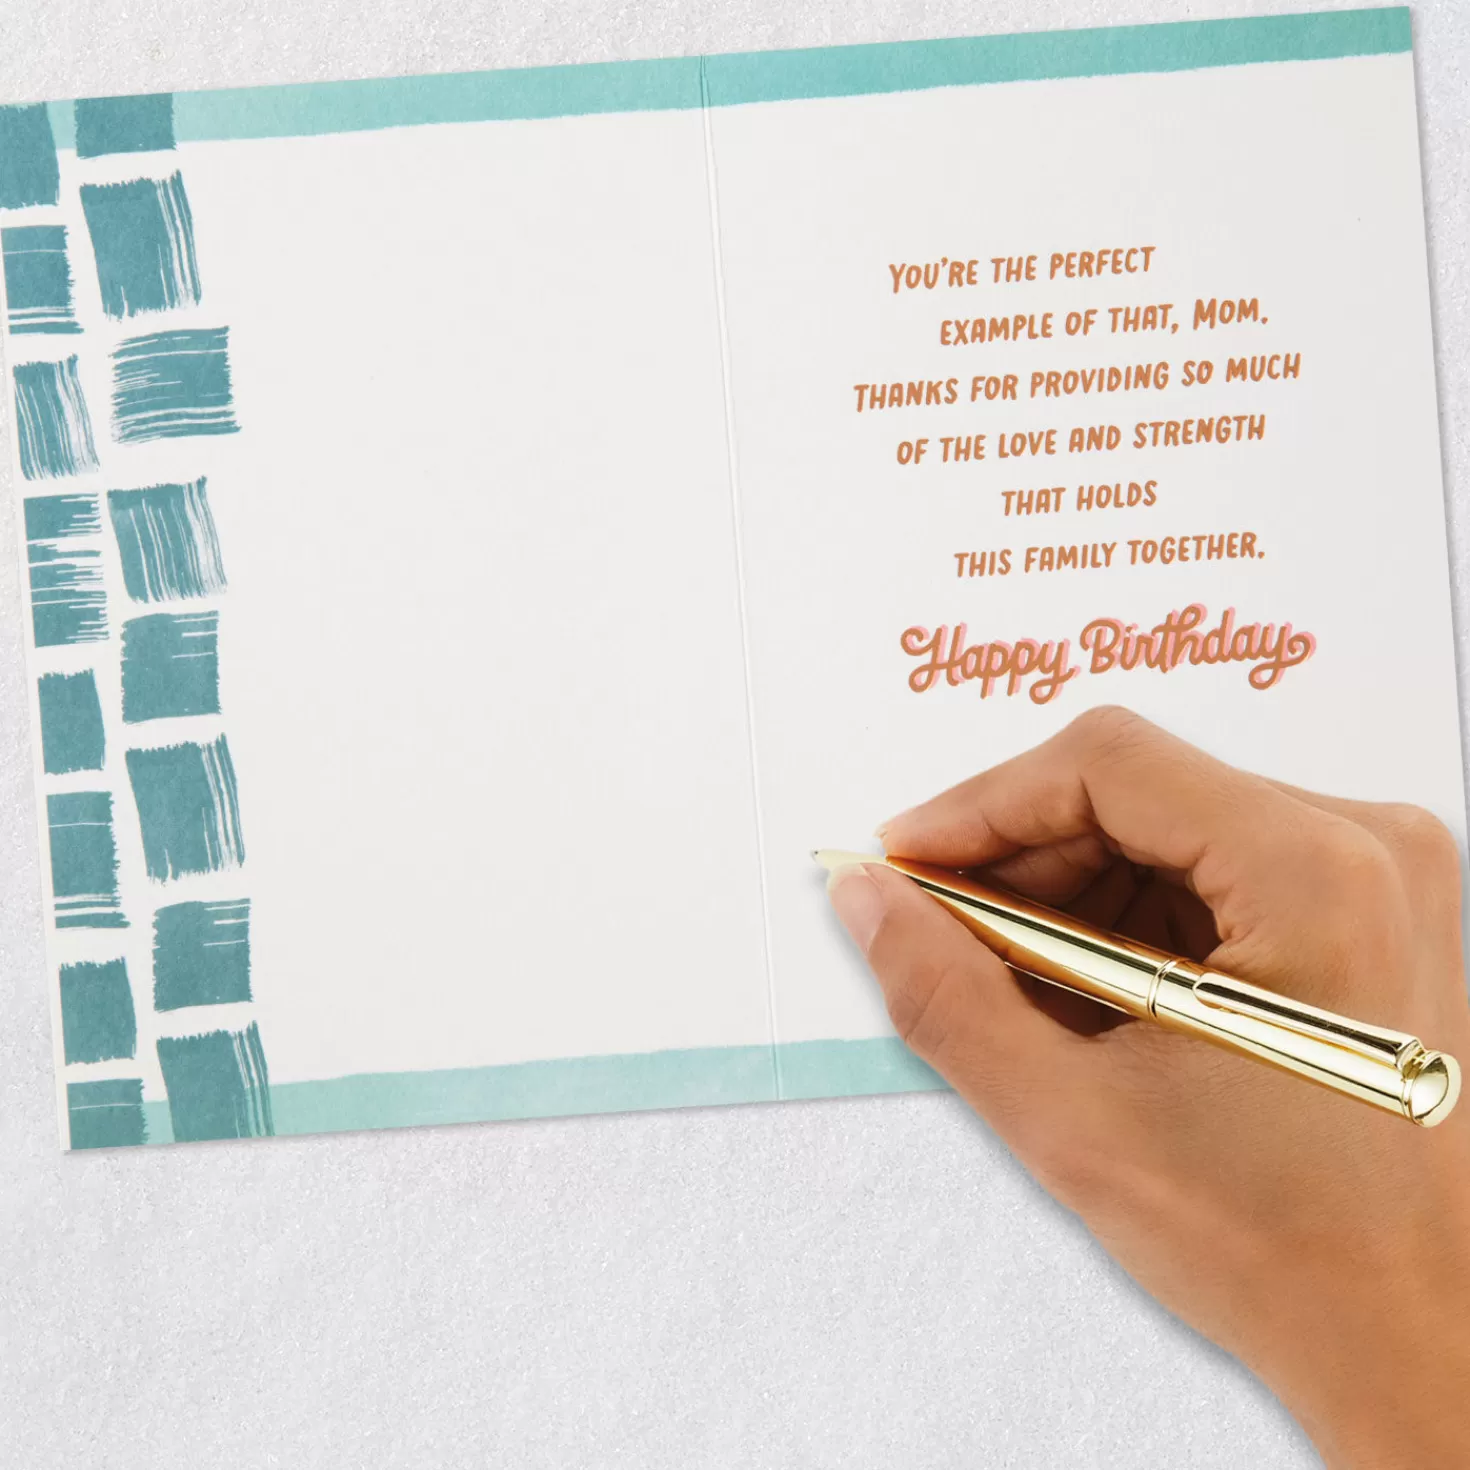 YOU'RE THE PERFECT
EXAMPLE OF THAT, MOM.
THANKS FOR PROVIDING SO MUCH
OF THE LOVE AND STRENGTH
THAT HOLDS
THIS FAMILY TOGETHER.
Happy Birthday